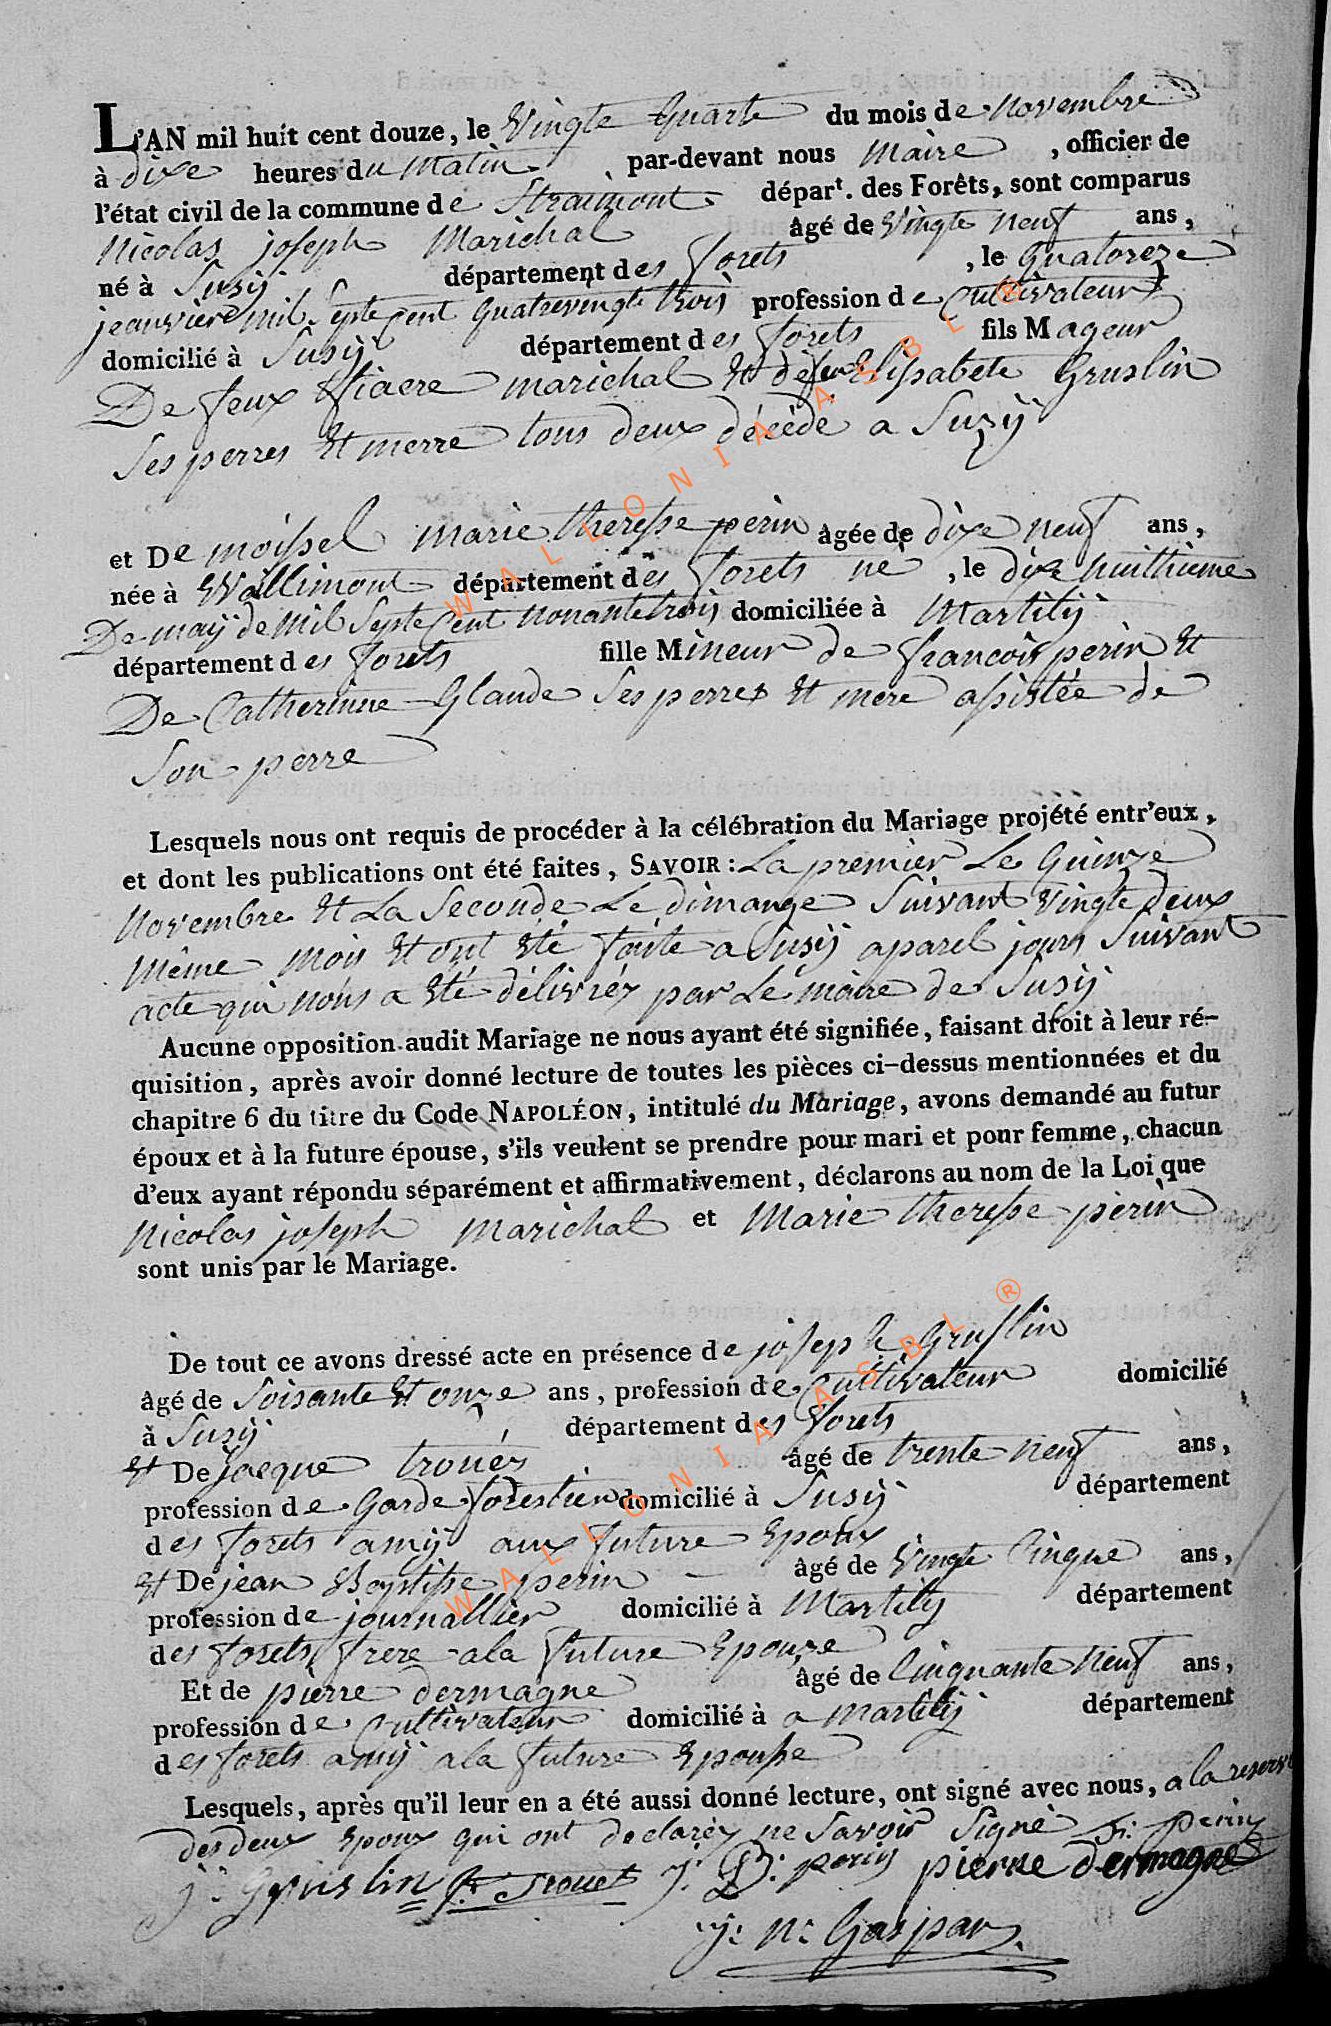 L'AN mil huit cent douze, le vingte quarte du mois de novembre
à dixe heures du matin par-devant nous maire, officier de
l'état civil de la commune de Straimont départ. des Forêts, sont comparus
Nicolas joseph Marichal âgé de vingte neuf ans,
né à Susÿ département des forets, le quatoreze
jeanvière mil septe cent quatrevingte trois profession de cultivateur
domicilié à Susÿ département des forets fils Mageur
De feux fiacre marichal et de feu Elisabete Gruslin
Ses perres et merre tous deux décédé a Suzÿ
et De moissel marie theresse perin âgée de dixe neuf ans,
née à Wallimont département des forets né, le dixe huithieme
De maÿ de mil septe cent nonante trois domiciliée à Martilÿ
département des forets fille Mineur de francois perin et
De Catherinne Glaude Ses perres et mere assistée de
Son perre
Lesquels nous ont requis de procéder à la célébration du Mariage projété entr'eux,
et dont les publications ont été faites, SAVOIR : La premier Le Quinze
Novembre et La Seconde Le dimange Suivant vingte deux
même mois et ont été faite a Susÿ aparel jours Suivant
acte qui nous a été délivréz par Le maire de Susÿ
Aucune opposition audit Mariage ne nous ayant été signifiée, faisant droit à leur ré-
quisition, après avoir donné lecture de toutes les pièces ci-dessus mentionnées et du
chapitre 6 du titre du Code NAPOLÉON, intitulé du Mariage, avons demandé au futur
époux et à la future épouse, s'ils veulent se prendre pour mari et pour femme, chacun
d'eux ayant répondu séparément et affirmativement, déclarons au nom de la Loi que
Nicolas joseph marichal et Marie theresse perin
sont unis par le Mariage.
De tout ce avons dressé acte en présence de joseph Gruslin
âgé de soisante et onze ans, profession de cultivateur domicilié
à Suzÿ département des forets
et De jacque trouéz âgé de trente neuf ans,
profession de Garde forestier domicilié à Susÿ département
des forets amÿ aux future Epoux
et De jean Baptisse perin âgé de vingte cinque ans,
profession de journallier domicilié à Martilÿ département
des forets frere a la future Epouze
Et de pierre dermagne âgé de cinquante neuf ans,
profession de cultivateur domicilié à a martilÿ département
des forets amÿ a la future Epousse
Lesquels, après qu'il leur en a été aussi donné lecture, ont signé avec nous, a la reserve
des deux Epoux qui ont declaréz ne savoir signé f: perin
j: Gruslin J: trouet J: B: perin pierre dermagne
j: n: Gaspar
WALLONIA ASBL ®
WALLONIA ASBL ®